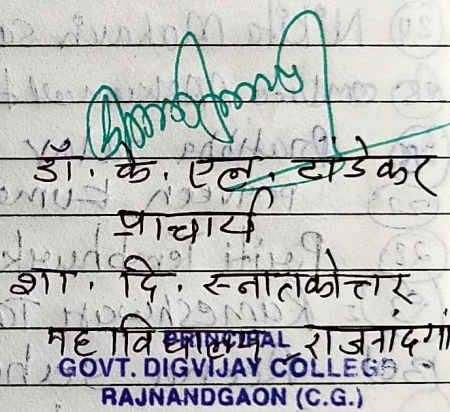 डॉ. के. एल. टांडेकर
प्राचार्य
शा. दि. स्नातकोत्तर
महाविद्यालय राजनांदगां
PRINCIPAL
GOVT. DIGVIJAY COLLEGE
RAJNANDGAON (C.G.)